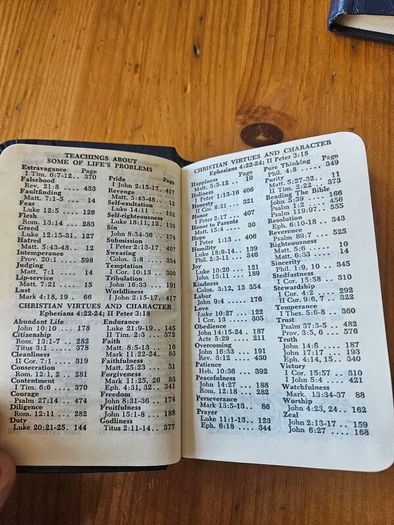 TEACHINGS ABOUT
SOME OF LIFE'S PROBLEMS
Page
Extravagance
I Tim. 6:7-12.. 370
Falsehood
Rev. 21:8 .... 453
Faultfinding
Matt. 7:1-5 ... 14
Fear
Luke 12:5 .... 126
Flesh
Rom. 13:14 ... 283
Greed
Luke 12:15-31.. 127
Hatred
Matt. 5:43-48.. 12
Intemperance
Prov. 20:1 .... 598
Judging
Matt. 7:1 .... 14
Lip-service
Matt. 7:21 .... 15
Lust
Mark 4:18, 19 .. 66
Page
Pride
I John 2:15-17. 417
Revenge
Matt. 5:43-48.. 12
Self-exaltation
Luke 14:11 .... 131
Self-righteousness
Luke 18:11, 12.. 139
Sin
John 8:34-36 .. 174
Submission
I Peter 2:13-17. 409
Swearing
Coloss. 3:8 ... 354
Temptation
I Cor. 10:13 ... 300
Tribulation
John 16:33 .... 191
Worldliness
I John 2:15-17.. 417
CHRISTIAN VIRTUES AND CHARACTER
Ephesians 4:22-24; II Peter 3:18
Abundant Life
John 10:10 ... 178
Citizenship
Rom. 13:1-7 ... 282
Titus 3:1 .... 378
Cleanliness
II Cor. 7:1 ... 319
Consecration
Rom. 12:1, 2 .. 281
Contentment
I Tim. 6:6 ... 370
Courage
Psalm 27:14 ... 474
Diligence
Rom. 12:11 ... 282
Duty
Luke 20:21-25.. 144
Endurance
Luke 21:9-19 .. 145
II Tim. 2:3 ... 372
Faith
Matt. 8:5-13 .. 16
Mark 11:22-24.. 83
Faithfulness
Matt. 25:23 ... 51
Forgiveness
Mark 11:25, 26 83
Eph. 4:31, 32 .. 343
Freedom
John 8:31-36 .. 174
Fruitfulness
John 15:1-8 ... 188
Godliness
Titus 2:11-14.. 377
CHRISTIAN VIRTUES AND CHARACTER
Ephesians 4:22-24; II Peter 3:18
Page
Happiness
Matt. 5:3-12 ..
Holiness
Honesty
II Cor. 8:21 ...
Honor
I Peter 2:17 ..
Honor Parents
Matt. 15:4 ... 30
Hope
I Peter 1:13 .. 406
Humility
Luke 18:9-14.. 139
Phil. 2:3-11 .. 346
Joy
Luke 10:20 ... 121
John 15:11 ... 189
Kindness
Coloss. 3:12, 13 354
Labor
John 9:4 .... 176
Love
Luke 10:27 ... 122
I Cor. 13 .... 305
Obedience
John 14:15-24 .. 187
Acts 5:29 ... 211
Overcoming
John 16:33 ... 191
Rev. 3:12 ...
Patience
Heb. 10:36 ... 392
Peacefulness
John 14:27 ... 188
Rom. 12:18 ... 282
Perseverance
Mark 13:5-13 .. 86
Prayer
Luke 11:1-13.. 123
Eph. 6:18 .... 344
Page
Pure Thinking
Phil. 4:8 .... 349
Purity
Matt. 5:27-32 .. 11
II Tim. 2:22 .. 373
Reading The Bible
John 5:39 ... 166
Psalm 1:2 ... 456
Psalm 119:97 .. 555
Resolution
Eph. 6:10-18 .. 343
Reverence
Psalm 89:7 ... 525
Righteousness
Matt. 5:6 .... 10
Matt. 6:33 ... 14
Sincerity
Phil. 1:9, 10 .. 345
Stedfastness
I Cor. 15:58 .. 310
Stewardship
I Cor. 4:2 ... 292
II Cor. 9:6, 7 .. 322
Temperance
I Thes. 5:6-8 .. 360
Trust
Psalm 37:3-5 .. 482
Prov. 3:5, 6 .. 576
Truth
John 14:6 ... 187
John 17:17 ... 193
Eph. 4:14, 15 .. 340
Victory
I Cor. 15:57 .. 310
I John 5:4 ... 421
Watchfulness
Mark. 13:34-37 88
Worship
John 4:23, 24.. 162
Zeal
John 2:13-17 .. 159
John 6:27 .... 168